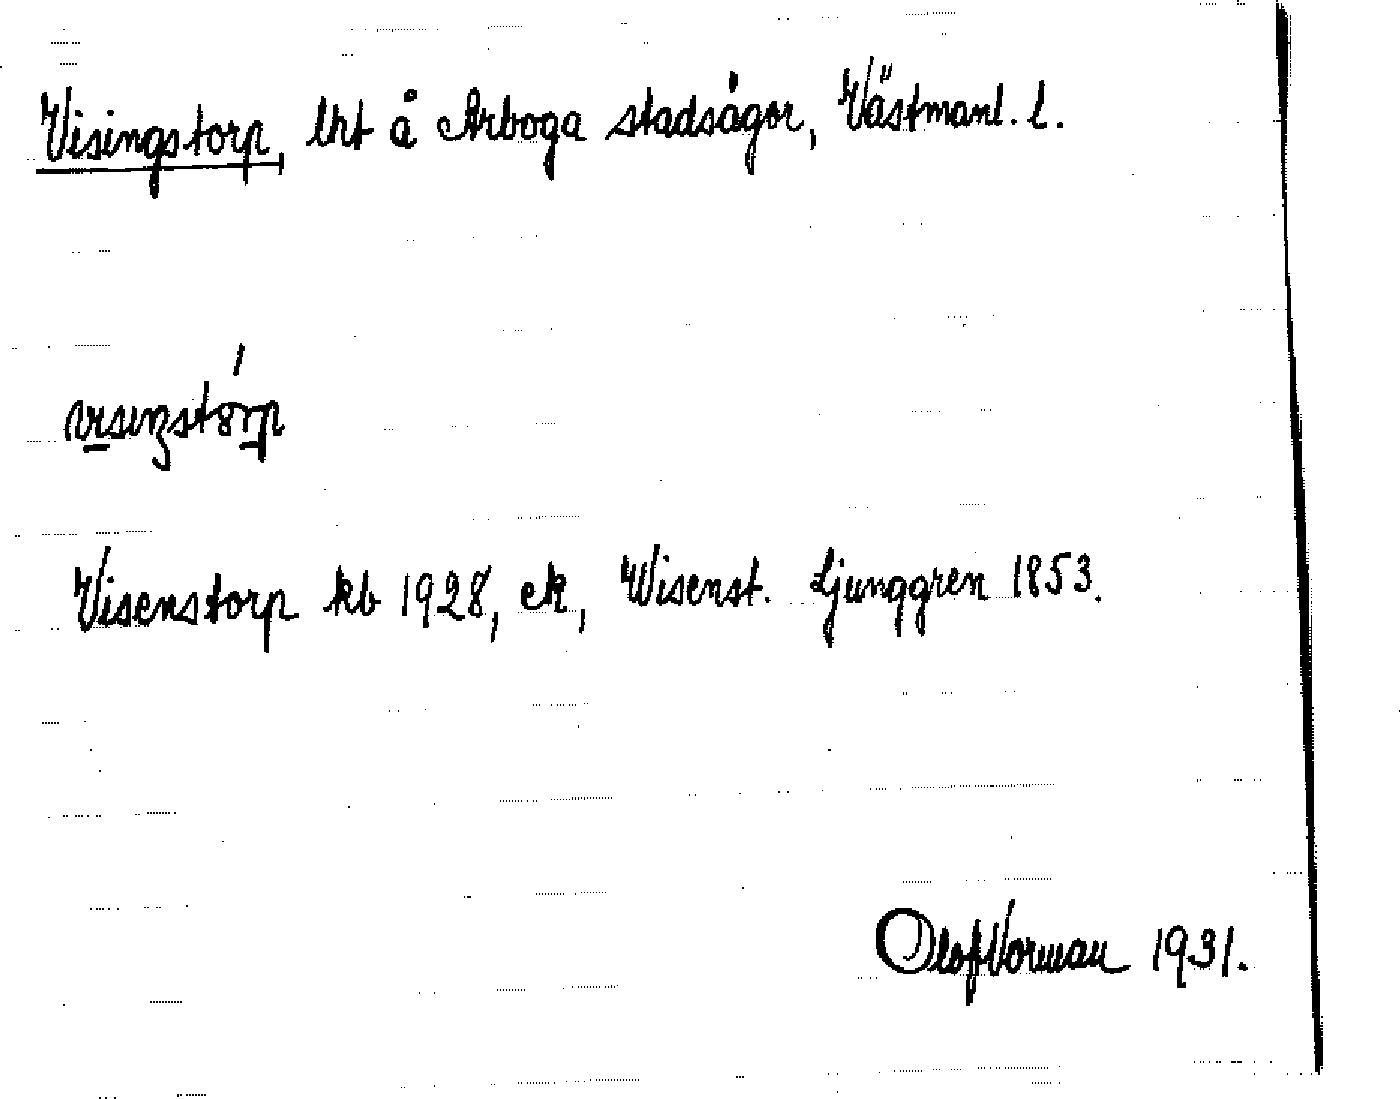 Visingstorp, lht å Arboga stadsågor, Västmanl. l.
Visenstorp kb 1928, ek, Wisenst. Ljunggren 1853.
Olof Vorman 1931.